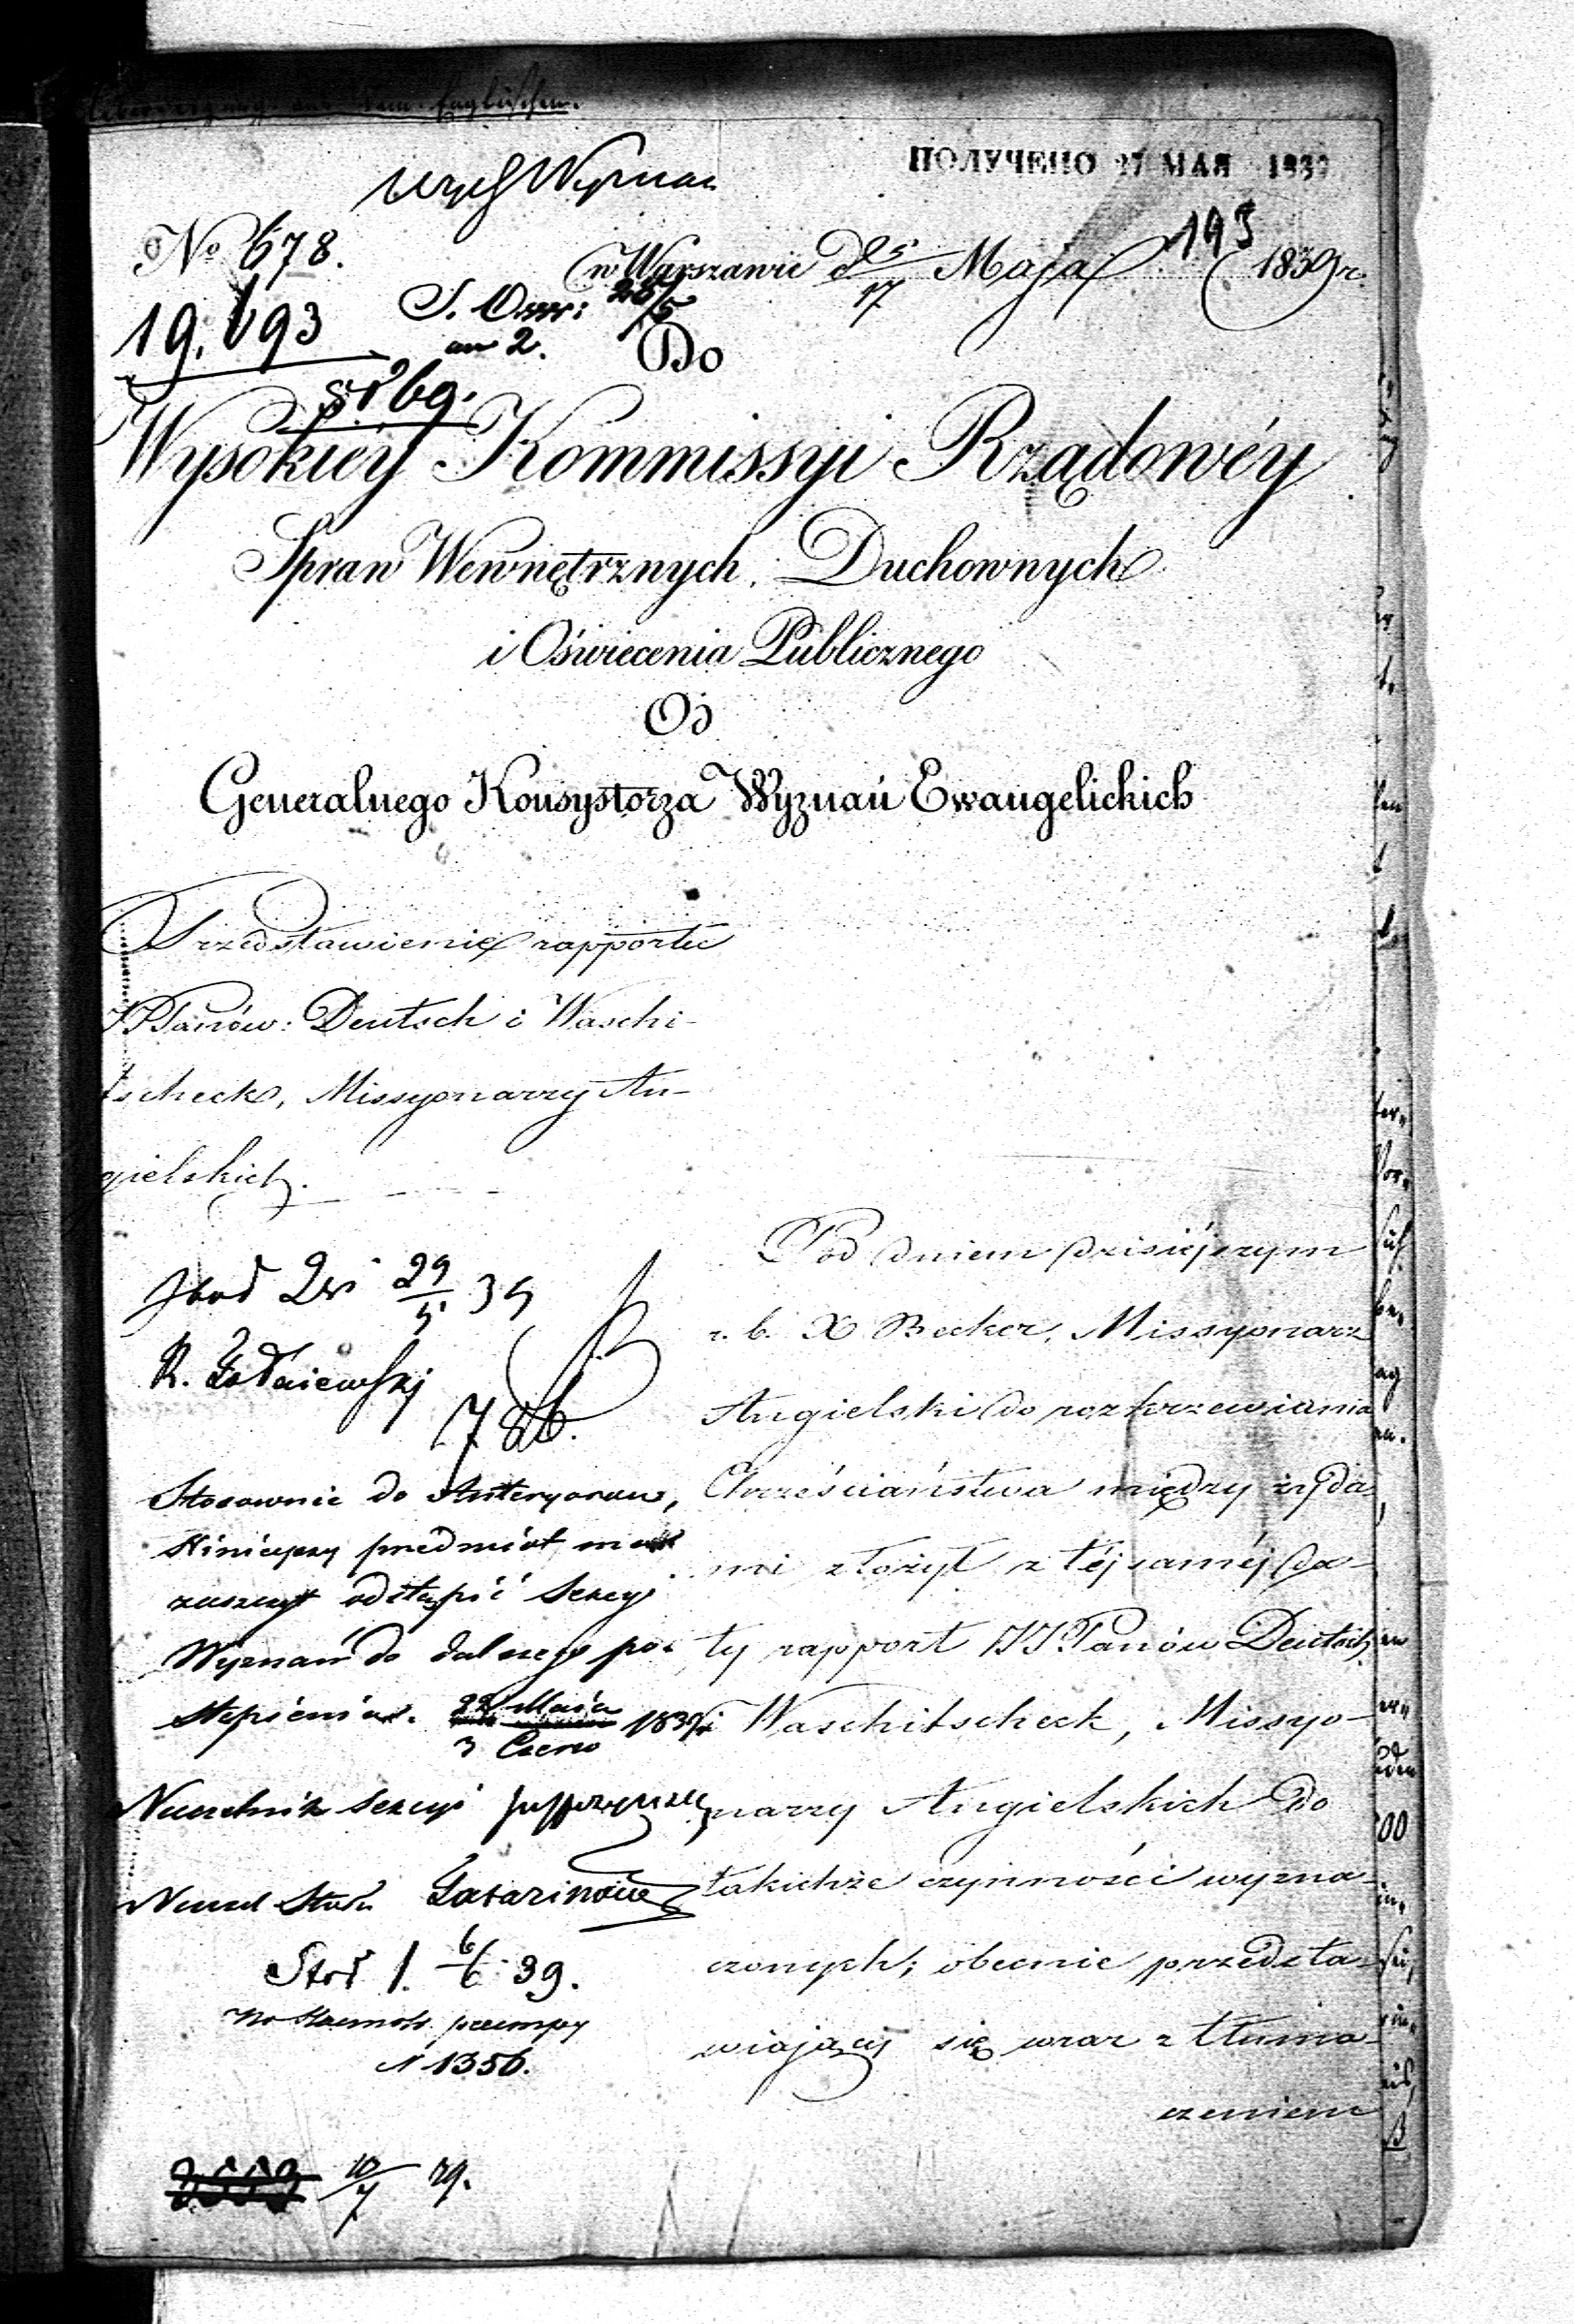 ПОЛУЧЕНО 27 МАЯ 183
Sekc Wyznań
No 678.
w Warszawie d 25/17 Maja 1839 r.
195
19,693
26/5
an 2.
Do
Wysokiéy Kommissyi Rządowéy
Spraw Wewnętrznych, Duchownych
i Oświecenia Publicznego
Od
Generalnego Konsystorza Wyznań Ewangelickich
Przedstawienie rapportu
JJPanów: Deutsch i Waschi-
tscheck, Missyonarzy An-
gielskich.
29/5 39
786.
Stosownie do Anteryorów,
Niniejszy przedmiot ma
zaszczyt odstąpić Sekcyi
Wyznań do dalszego po-
stąpienia. 22 Maja / 3 Czerw 1839
Naczelnik Sekcyi
Naczel Stołu
Stoł 1. 6/6 39.
N 1356.
10/7 39.
Pod dniem dzisiéjszym
r. b. X Becker, Missyonarz
Angielski do rozkrzewiania
Chrześciaństwa między żyda-
mi złożył z téj saméj da-
ty rapport JJ Panów Deutsch
i Waschitscheck, Missyo-
narzy Angielskich do
takichże czynności wyzna-
czonych; obecnie przedsta-
wiający się wraz z tłuma-
czeniem